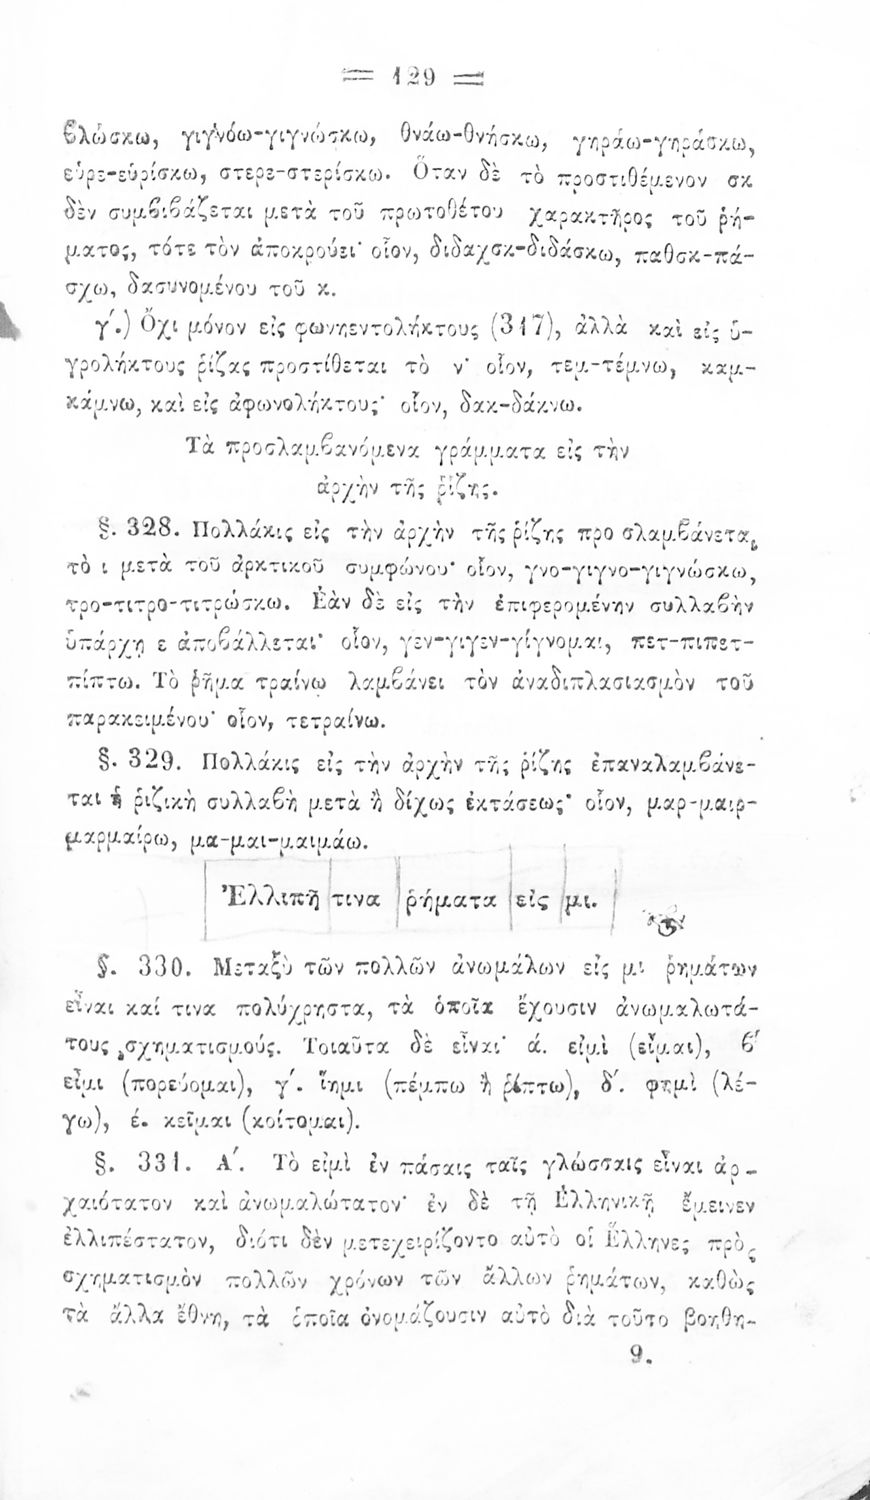 = 129 =
βλώσκω, γιγνόω-γιγνώσκω, θνάω-θνήσκω, γηράω-γηράσκω,
εὑρε-εὑρίσκω, στερε-στερίσκω. Ὅταν δὲ τὸ προστιθέμενον σκ
δὲν συμβιβάζεται μετὰ τοῦ πρωτοθέτου χαρακτῆρος τοῦ ῥή-
ματος, τότε τὸν ἀποκρούει· οἷον, διδαχσκ-διδάσκω, παθσκ-πά-
σχω, δασυνομένου τοῦ κ.
γ΄.) Ὄχι μόνον εἰς φωνηεντολήκτους (317), ἀλλὰ καὶ εἰς ὑ-
γρολήκτους ῥίζας προστίθεται τὸ ν· οἷον, τεμ-τέμνω, καμ-
κάμνω, καὶ εἰς ἀφωνολήκτους· οἷον, δακ-δάκνω.
Τὰ προσλαμβανόμενα γράμματα εἰς τὴν
ἀρχὴν τῆς ῥίζης.
§. 328. Πολλάκις εἰς τὴν ἀρχὴν τῆς ῥίζης προσλαμβάνεται
τὸ ι μετὰ τοῦ ἀρκτικοῦ συμφώνου· οἷον, γνο-γιγνο-γιγνώσκω,
τρο-τιτρο-τιτρώσκω. Ἐὰν δὲ εἰς τὴν ἐπιφερομένην συλλαβὴν
ὑπάρχῃ ε ἀποβάλλεται· οἷον, γεν-γιγεν-γίγνομαι, πετ-πιπετ-
πίπτω. Τὸ ῥῆμα τραίνω λαμβάνει τὸν ἀναδιπλασιασμὸν τοῦ
παρακειμένου· οἷον, τετραίνω.
§. 329. Πολλάκις εἰς τὴν ἀρχὴν τῆς ῥίζης ἐπαναλαμβάνε-
ται ἡ ῥιζικὴ συλλαβὴ μετὰ ἢ δίχως ἐκτάσεως· οἷον, μαρ-μαιρ-
μαρμαίρω, μα-μαι-μαιμάω.
Ἐλλιπῆ τινα ῥήματα εἰς μι.
§. 330. Μεταξὺ τῶν πολλῶν ἀνωμάλων εἰς μι ῥημάτων
εἶναι καί τινα πολύχρηστα, τὰ ὁποῖα ἔχουσιν ἀνωμαλωτά-
τους σχηματισμούς. Τοιαῦτα δὲ εἶναι· ά. εἰμὶ (εἶμαι), β΄
εἶμι (πορεύομαι), γ΄. ἵημι (πέμπω ἢ ῥίπτω), δ΄. φημὶ (λέ-
γω), έ. κεῖμαι (κοίτομαι).
§. 331. Α΄. Τὸ εἰμὶ ἐν πάσαις ταῖς γλώσσαις εἶναι ἀρ-
χαιότατον καὶ ἀνωμαλώτατον· ἐν δὲ τῇ Ἑλληνικῇ ἔμεινεν
ἐλλιπέστατον, διότι δὲν μετεχειρίζοντο αὐτὸ οἱ Ἕλληνες πρὸς
σχηματισμὸν πολλῶν χρόνων τῶν ἄλλων ῥημάτων, καθὼς
τὰ ἄλλα ἔθνη, τὰ ὁποῖα ὀνομάζουσιν αὐτὸ διὰ τοῦτο βοηθη-
9.